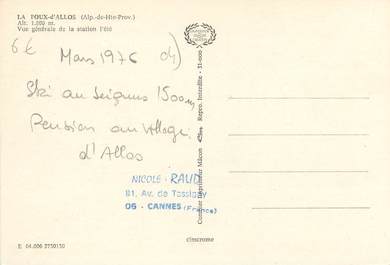 LA FOUX-d'ALLOS (Alp.-de-Hte-Prov.)
Alt. 1.800 m.
Vue générale de la station l'été
6€
Mars 1976 04)
Ski au Seignus 1500m
Pension au village
d'Allos
NICOLE - RAUD
81, Av. de Tassigny
06 - CANNES (France)
Combier Imprimeur Mâcon
Repro. Interdite - 31-600
cimcrome
E 04.006 2750150